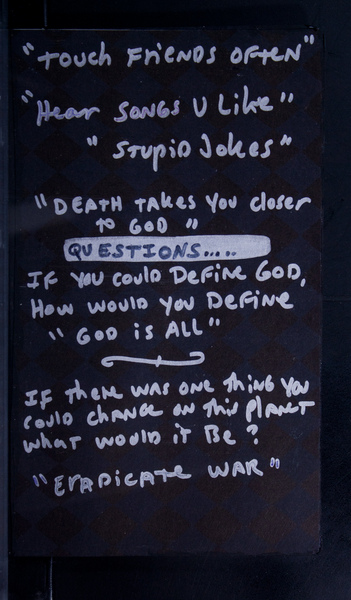 "TOUCH FRIENDS OFTEN"
"Hear SONGS U Like"
"STUPID Jokes"
"DEATH TAKES YOU closer
TO GOD"
QUESTIONS.....
IF YOU COULD DEFINE GOD,
HOW WOULD YOU DEFINE
"GOD is ALL"
IF there WAS ONE thing YOU
COULD CHANGE ON this PLANET
WHAT WOULD iT Be?
"ERADICATE WAR"